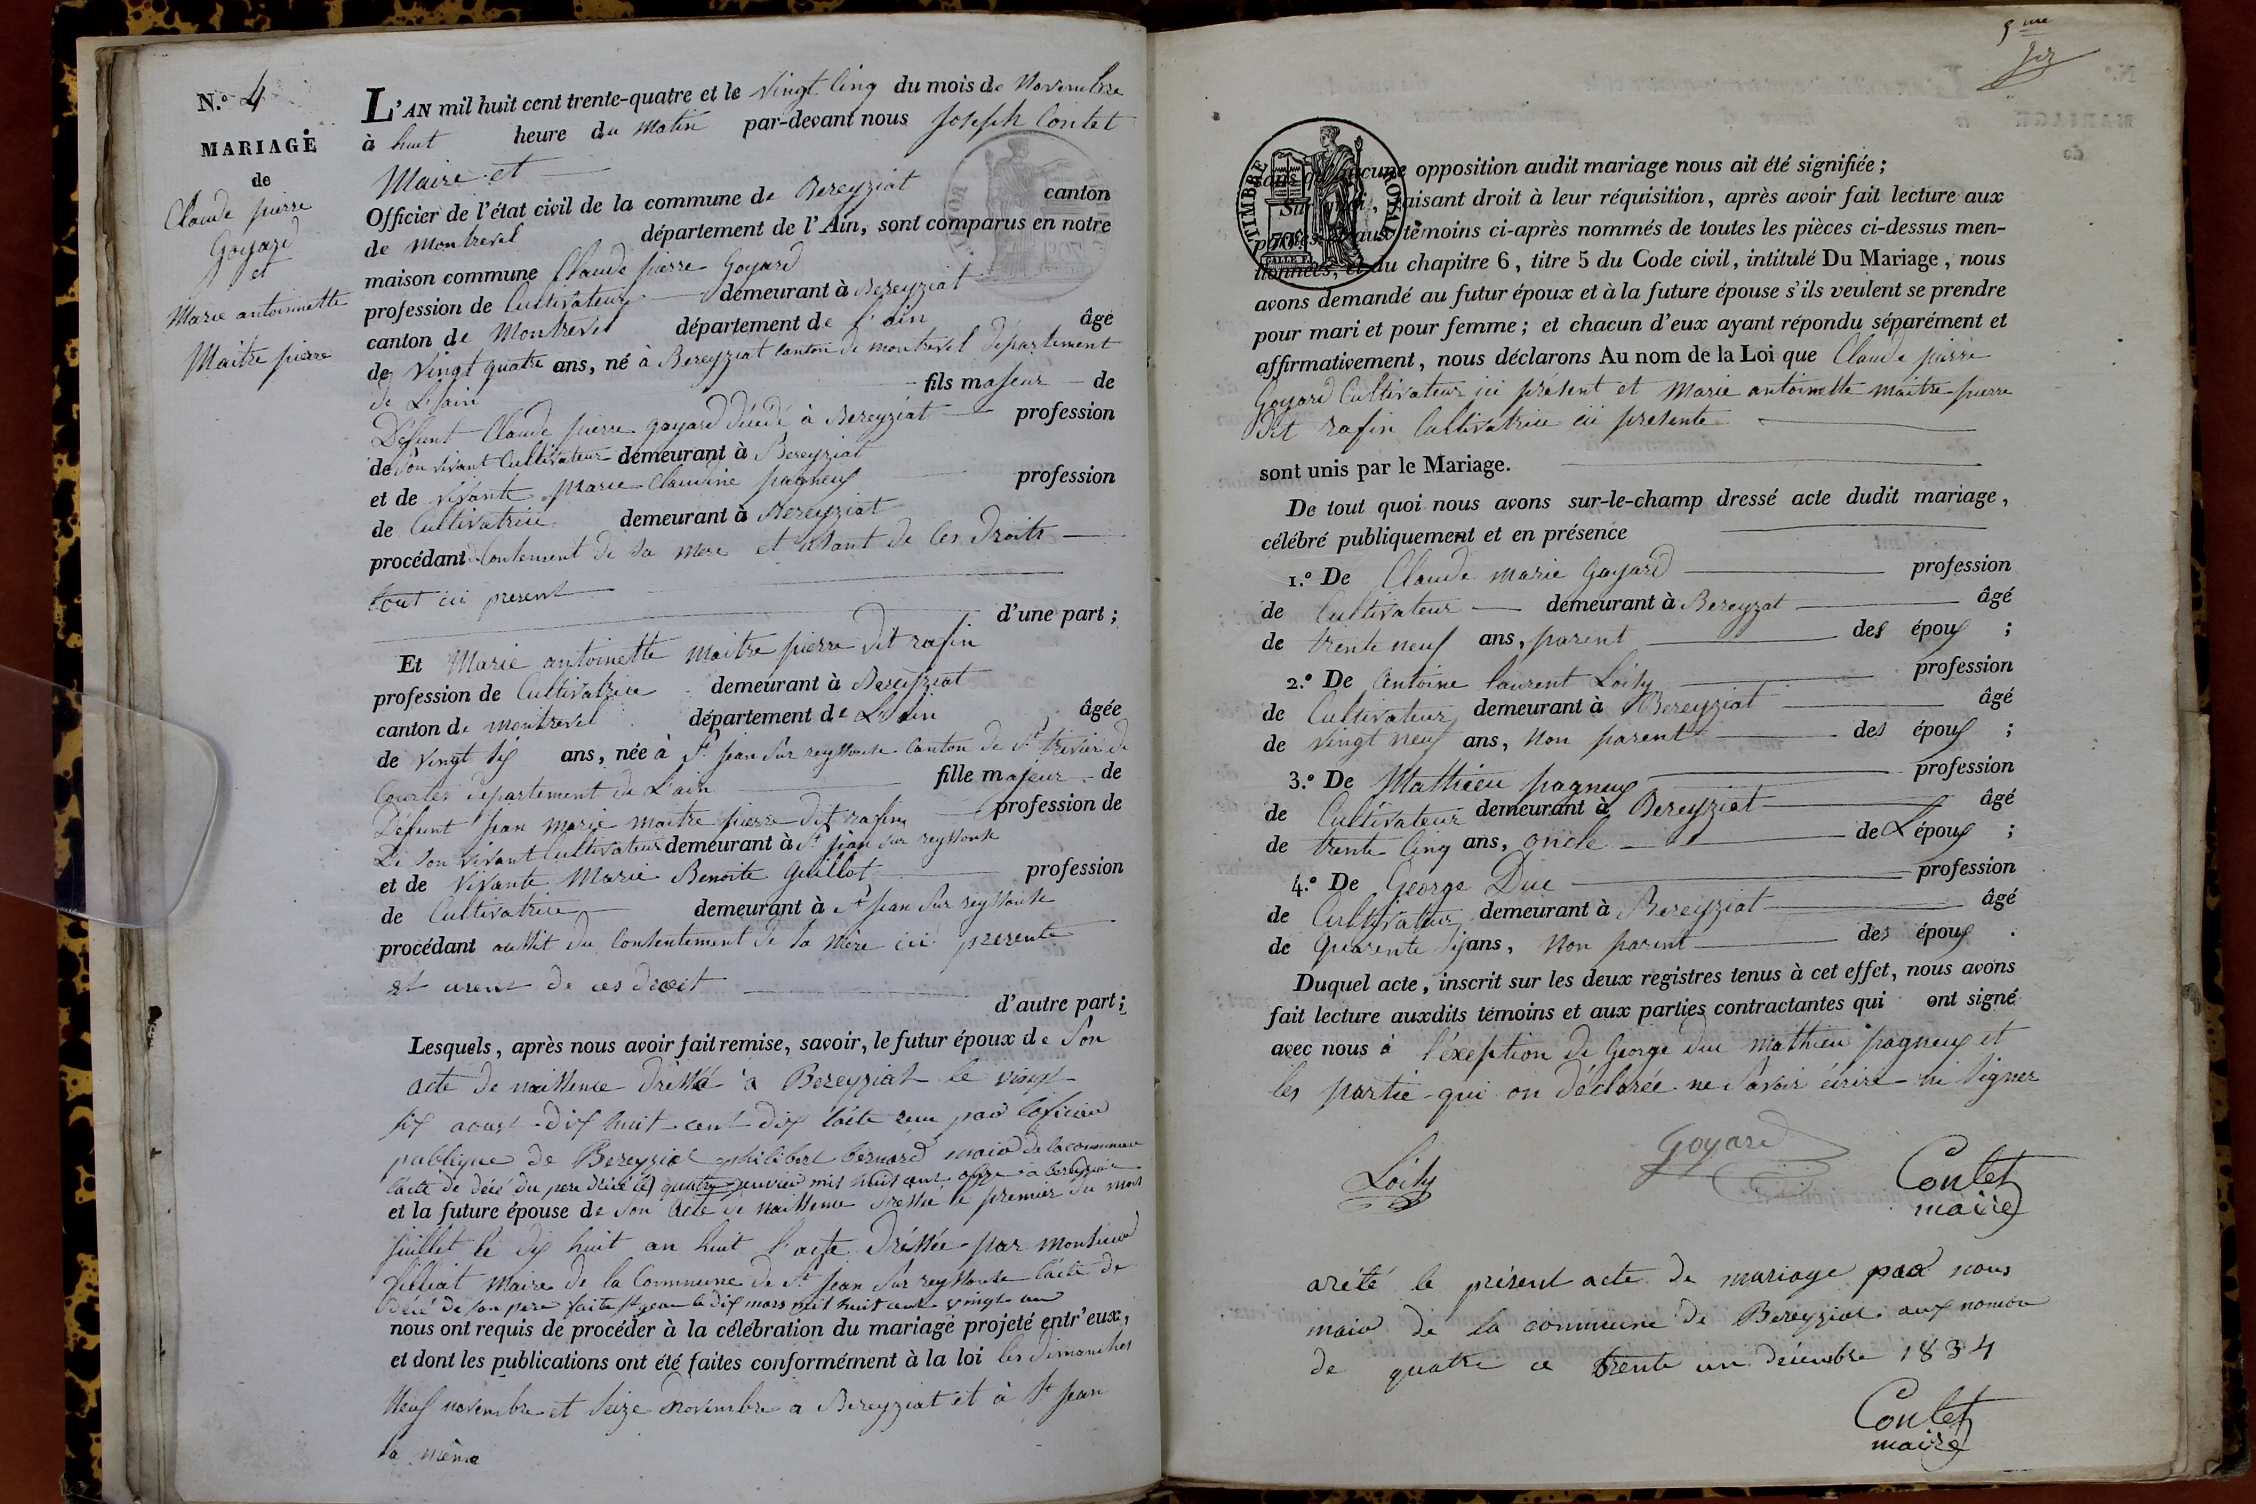 N.º 4
MARIAGE
de
Claude pierre
Goyard
et
Marie antoinette
Maitre pierre
L'AN mil huit cent trente-quatre et le vingt Cinq du mois de Novembre
à huit heure du Matin par-devant nous Joseph Contet
Maire et
Officier de l'état civil de la commune de Bereyziat canton
de Montrevel département de l'Ain, sont comparus en notre
maison commune Claude pierre Goyard
profession de Cultivateur demeurant à Bereyziat
canton de Montrevel département de l'ain âgé
de vingt quatre ans, né à Bereyziat canton de montrevel département
de L'ain fils majeur de
Défunt Claude pierre goyard décédé à Bereyziat profession
de son vivant Cultivateur demeurant à Bereyziat
et de vivante Marie Claudine pagneux profession
de Cultivatrice demeurant à Bereyziat
procédant Contement de sa mere et usant de Ces Droits
tout ici present
d'une part ;
Et Marie antoinette maitre pierre dit rafin
profession de Cultivatrice demeurant à Bereyziat
canton de montrevel département de L'ain âgée
de vingt six ans, née à St jean sur reyssouse Canton de St trivier de
Courtes département de L'ain fille majeur de
Défunt jean marie maitre pierre dit rafin profession de
De son vivant Cultivateur demeurant à St jean sur reyssouse
et de vivante Marie Benoite Guillot profession
de Cultivatrice demeurant à St jean sur reyssouse
procédant aussit du Contentement de sa mère ici presente
et usent de ces droit
d'autre part ;
Lesquels, après nous avoir fait remise, savoir, le futur époux de Son
acte de naissence dressé à Bereyziat le vingt
six aoust dix huit cent dix l'acte par l'oficier
publique de Bereyziat philibert bernard maire de la commune
l'acte de décé du pere décédé le quatre janvier mil huit cent onze à bereyziat
et la future épouse de son acte de naissence dressée le premier du mois
juillet le dix huit an huit l'acte dressée par monsieur
maire de la Commune de St jean sur reyssouse l'acte de
décé de son pere faite St jean le dix mars mil huit cent vingt un
nous ont requis de procéder à la célébration du mariage projeté entr'eux,
et dont les publications ont été faites conformément à la loi les dimanches
Neuf novembre et Seize novembre a Bereyziat et à St jean
la même
5me
TIMBRE ROYAL
sans qu'aucune opposition audit mariage nous ait été signifiée ;
Sur quoi, faisant droit à leur réquisition, après avoir fait lecture aux
parties et aux témoins ci-après nommés de toutes les pièces ci-dessus men-
tionnées, et du chapitre 6, titre 5 du Code civil, intitulé Du Mariage, nous
avons demandé au futur époux et à la future épouse s'ils veulent se prendre
pour mari et pour femme ; et chacun d'eux ayant répondu séparément et
affirmativement, nous déclarons Au nom de la Loi que Claude pierre
Goyard Cultivateur ici présent et Marie antoinette maitre pierre
Dit rafin Cultivatrice ici presente
sont unis par le Mariage.
De tout quoi nous avons sur-le-champ dressé acte dudit mariage,
célébré publiquement et en présence
1.º De Claude marie Goyard profession
de Cultivateur demeurant à Bereyzat âgé
de trente neuf ans, parent des époux ;
2.º De Antoine laurent Loisy profession
de Cultivateur demeurant à Bereyziat âgé
de vingt neuf ans, Non parent des époux ;
3.º De Mathieu pagneux profession
de Cultivateur demeurant à Bereyziat âgé
de trente Cinq ans, oncle de L'époux ;
4.º De George Duc profession
de Cultivateur demeurant à Bereyziat âgé
de quarente six ans, Non parent des époux .
Duquel acte, inscrit sur les deux registres tenus à cet effet, nous avons
fait lecture auxdits témoins et aux parties contractantes qui ont signé
avec nous à l'exeption de George duc mathieu pagneux et
les partie qui on déclarée ne savoir écrire ni signer
Loisy Goyard Contet
maire
arété le présent acte de mariage par nous
maire de la commune de Bereyziat aux nombre
de quatre ce trente un decembre 1834
Contet
maire